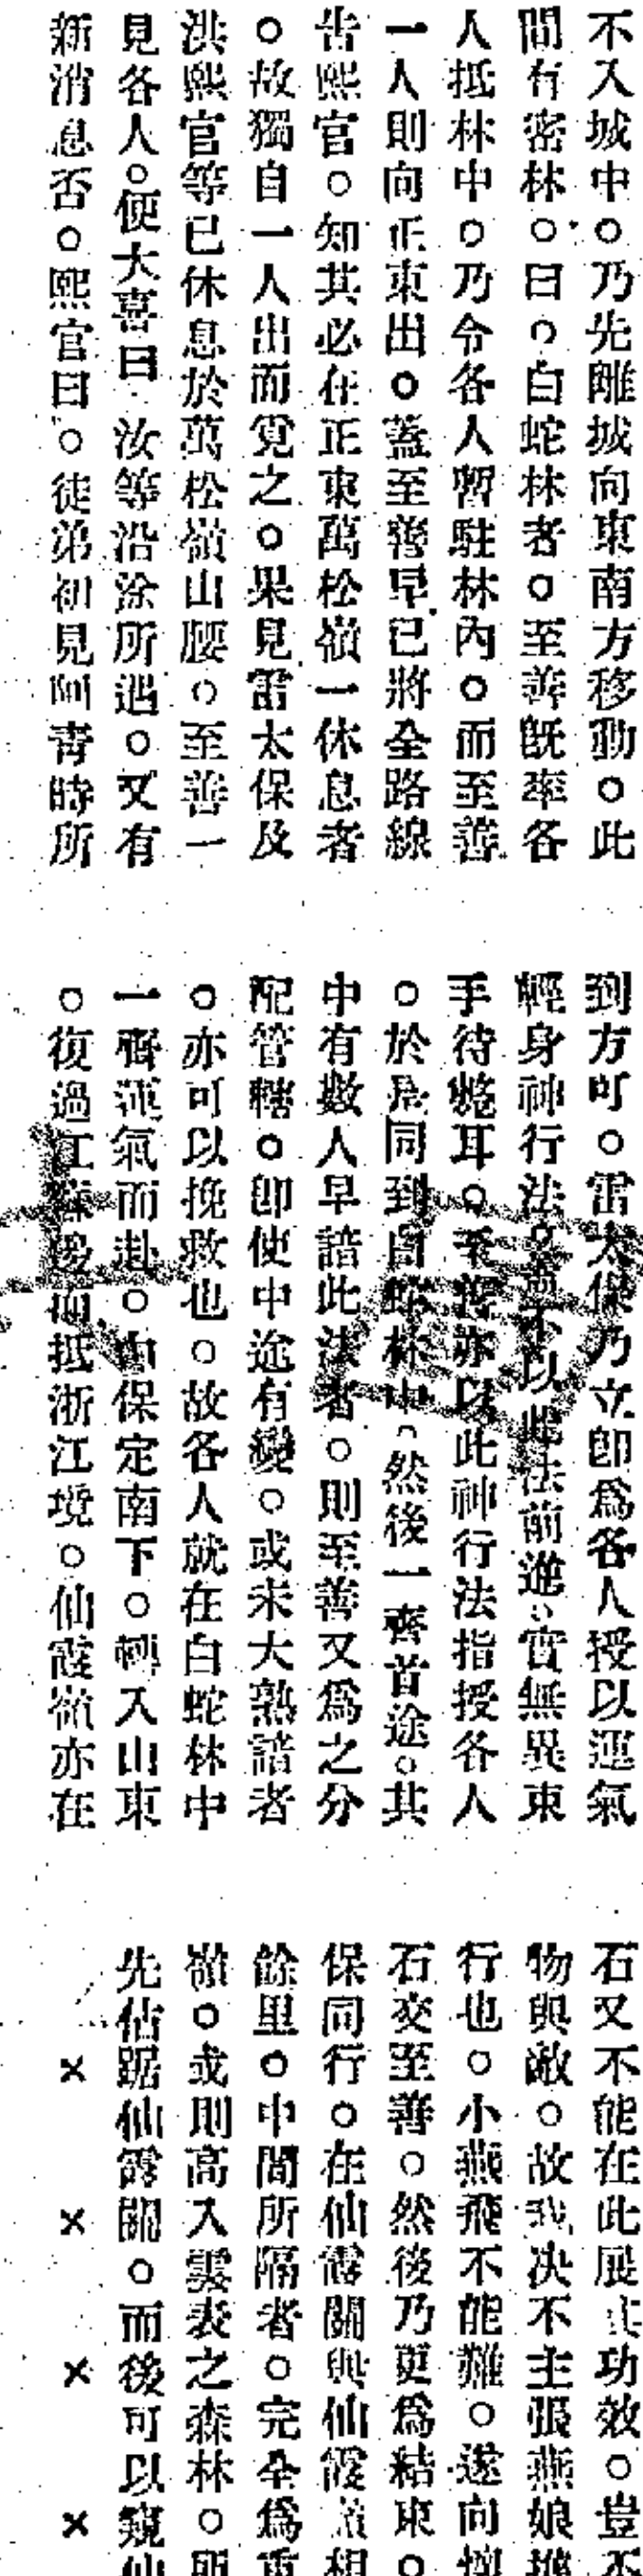 不入城中。乃先離城向東南方移動。此
間有密林。曰。白蛇林者。至善既率各
人抵林中。乃令各人暫駐林內。而至善
一人則向正東出。蓋至善早已將全路線
告熙官。知其必在正東萬松嶺一休息者
。故獨自一人出而覓之。果見雷太保及
洪熙官等已休息於萬松嶺山腰。至善一
見各人。便大喜曰 汝等沿途所遇。又有
新消息否。熙官曰。徒弟初見阿青時所
到方可。雷太保乃立即為各人授以運氣
輕身神行法。蓋不以此法前進、實無異束
手待斃耳。至善亦以此神行法指授各人
。於是同到白蛇林中。然後一齊首途。其
中有數人早諳此法者。則至善又為之分
配管轄。即使中途有變。或未大熟諳者
。亦可以挽救也。故各人就在白蛇林中
一齊運氣而赴。由保定南下。轉入山東
。復過江 而抵浙江境。仙霞嶺亦在
石又不能在此展其功效。豈不
物與敵。故我決不主張燕娘
行也。小燕飛不能難。遂向
石交至善。然後乃更為結束。
保同行。在仙霞關與仙霞嶺相
餘里。中間所隔者。完全為重
嶺。或則高入雲表之森林。所
先佔踞仙霞關。而後可以窺仙
× × × ×